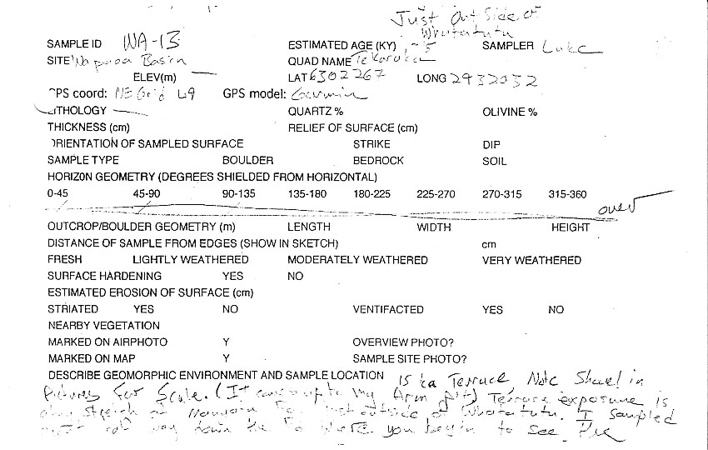 Just Outside of
Whatatutu
SAMPLE ID WA-13 ESTIMATED AGE (KY) ~5 SAMPLER Luke
SITE Waipaoa Basin QUAD NAME Te Karaka
ELEV(m) LAT 6302267 LONG 2932032
GPS coord: NZ Grid 49 GPS model: Garmin
LITHOLOGY QUARTZ % OLIVINE %
THICKNESS (cm) RELIEF OF SURFACE (cm)
ORIENTATION OF SAMPLED SURFACE STRIKE DIP
SAMPLE TYPE BOULDER BEDROCK SOIL
HORIZON GEOMETRY (DEGREES SHIELDED FROM HORIZONTAL)
0-45 45-90 90-135 135-180 180-225 225-270 270-315 315-360
over
OUTCROP/BOULDER GEOMETRY (m) LENGTH WIDTH HEIGHT
DISTANCE OF SAMPLE FROM EDGES (SHOW IN SKETCH) cm
FRESH LIGHTLY WEATHERED MODERATELY WEATHERED VERY WEATHERED
SURFACE HARDENING YES NO
ESTIMATED EROSION OF SURFACE (cm)
STRIATED YES NO VENTIFACTED YES NO
NEARBY VEGETATION
MARKED ON AIRPHOTO Y OVERVIEW PHOTO?
MARKED ON MAP Y SAMPLE SITE PHOTO?
DESCRIBE GEOMORPHIC ENVIRONMENT AND SAMPLE LOCATION 15 ka Terrace Note Shovel in
Pictures For Scale. (It comes up to my Arm pit) Terrace exposure is
along stretch of outside of Whatatutu. I sampled
way down the where you begin to see